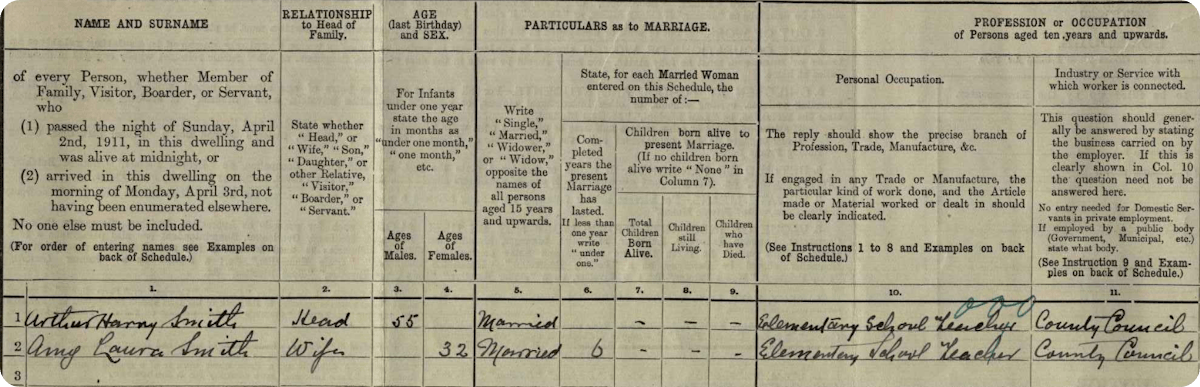 NAME AND SURNAME
of every Person, whether Member of
Family, Visitor, Boarder, or Servant,
who
(1) passed the night of Sunday, April
2nd, 1911, in this dwelling and
was alive at midnight, or
(2) arrived in this dwelling on the
morning of Monday, April 3rd, not
having been enumerated elsewhere.
No one else must be included.
(For order of entering names see Examples on
back of Schedule.)
RELATIONSHIP
to Head of
Family.
State whether
"Head," or
"Wife," "Son,"
"Daughter," or
other Relative,
"Visitor,"
"Boarder," or
"Servant."
AGE
(last Birthday)
and SEX.
For Infants
under one year
state the age
in months as
"under one month,"
"one month,"
etc.
Ages
of
Males.
Ages
of
Females.
PARTICULARS as to MARRIAGE.
Write
"Single,"
"Married,"
"Widower,"
or "Widow,"
opposite the
names of
all persons
aged 15 years
and upwards.
State, for each Married Woman
entered on this Schedule, the
number of:—
Com-
pleted
years the
present
Marriage
has
lasted.
If less than
one year
write
"under
one."
Children born alive to
present Marriage.
(If no children born
alive write "None" in
Column 7).
Total
Children
Born
Alive.
Children
still
Living.
Children
who
have
Died.
PROFESSION or OCCUPATION
of Persons aged ten years and upwards.
Personal Occupation.
The reply should show the precise branch of
Profession, Trade, Manufacture, &c.
If engaged in any Trade or Manufacture, the
particular kind of work done, and the Article
made or Material worked or dealt in should
be clearly indicated.
(See Instructions 1 to 8 and Examples on back
of Schedule.)
Industry or Service with
which worker is connected.
This question should gener-
ally be answered by stating
the business carried on by
the employer. If this is
clearly shown in Col. 10
the question need not be
answered here.
No entry needed for Domestic Ser-
vants in private employment.
If employed by a public body
(Government, Municipal, etc.)
state what body.
(See Instruction 9 and Exam-
ples on back of Schedule.)
1. 2. 3. 4. 5. 6. 7. 8. 9. 10. 11.
000
1 Arthur Harry Smith Head 55 Married – – – Elementary School Teacher County Council
2 Amy Laura Smith Wife 32 Married 6 – – – Elementary School Teacher County Council
3